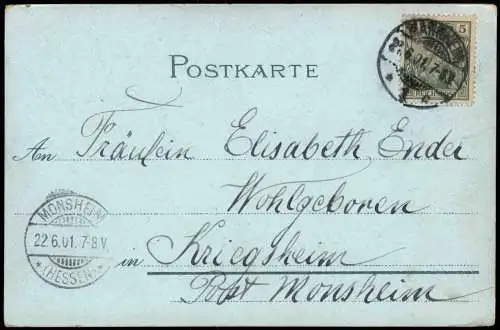 5
MANNHEIM
22.6.01. 7-8V.
REICHSPOST
POSTKARTE
An Fräulein Elisabeth Ender
Wohlgeboren
MONSHEIM
22.6.01. 7-8.V.
* (HESSEN) *
in Kriegsheim
Post Monsheim